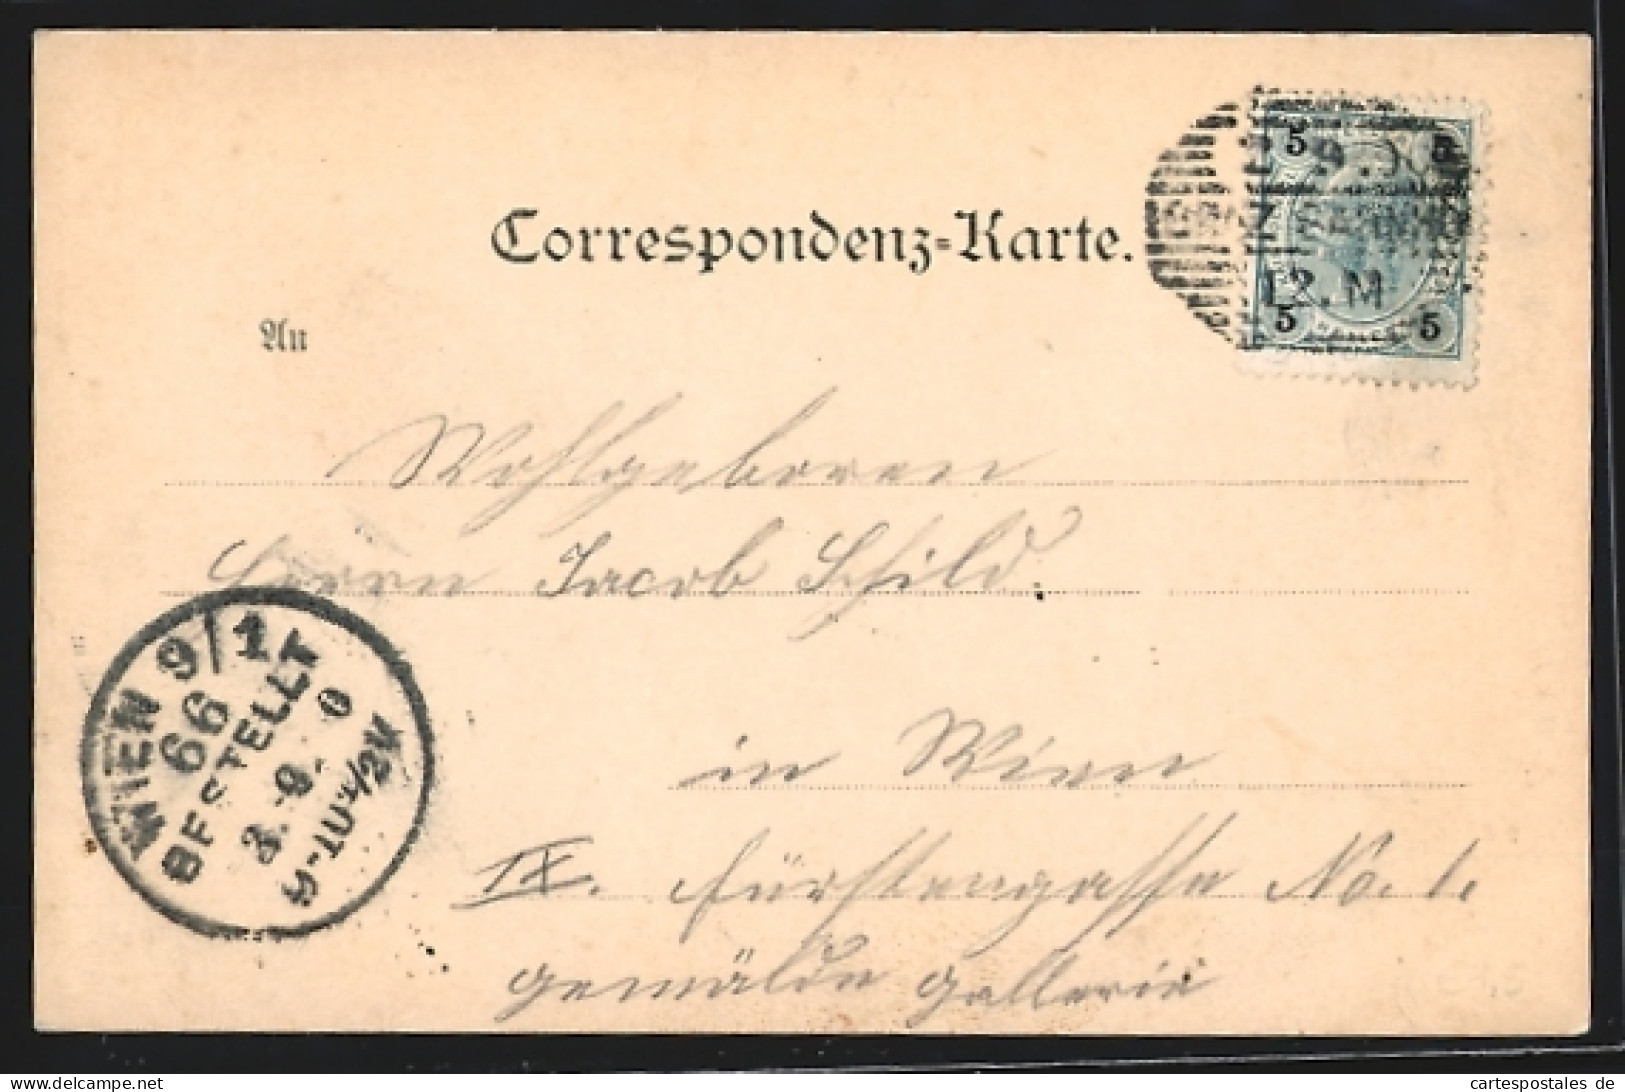 5 5
9
12. M
5 5
Correspondenz-Karte.
An
Wohlgeboren
Herrn Jacob Schild.
in Wien
IX. Fürstengasse No. 1.
gemälde gallerie
WIEN 9/1
66
BESTELLT
3. 9. 0
9-10 1/2 V
cartespostales de
www.cartespostales.de